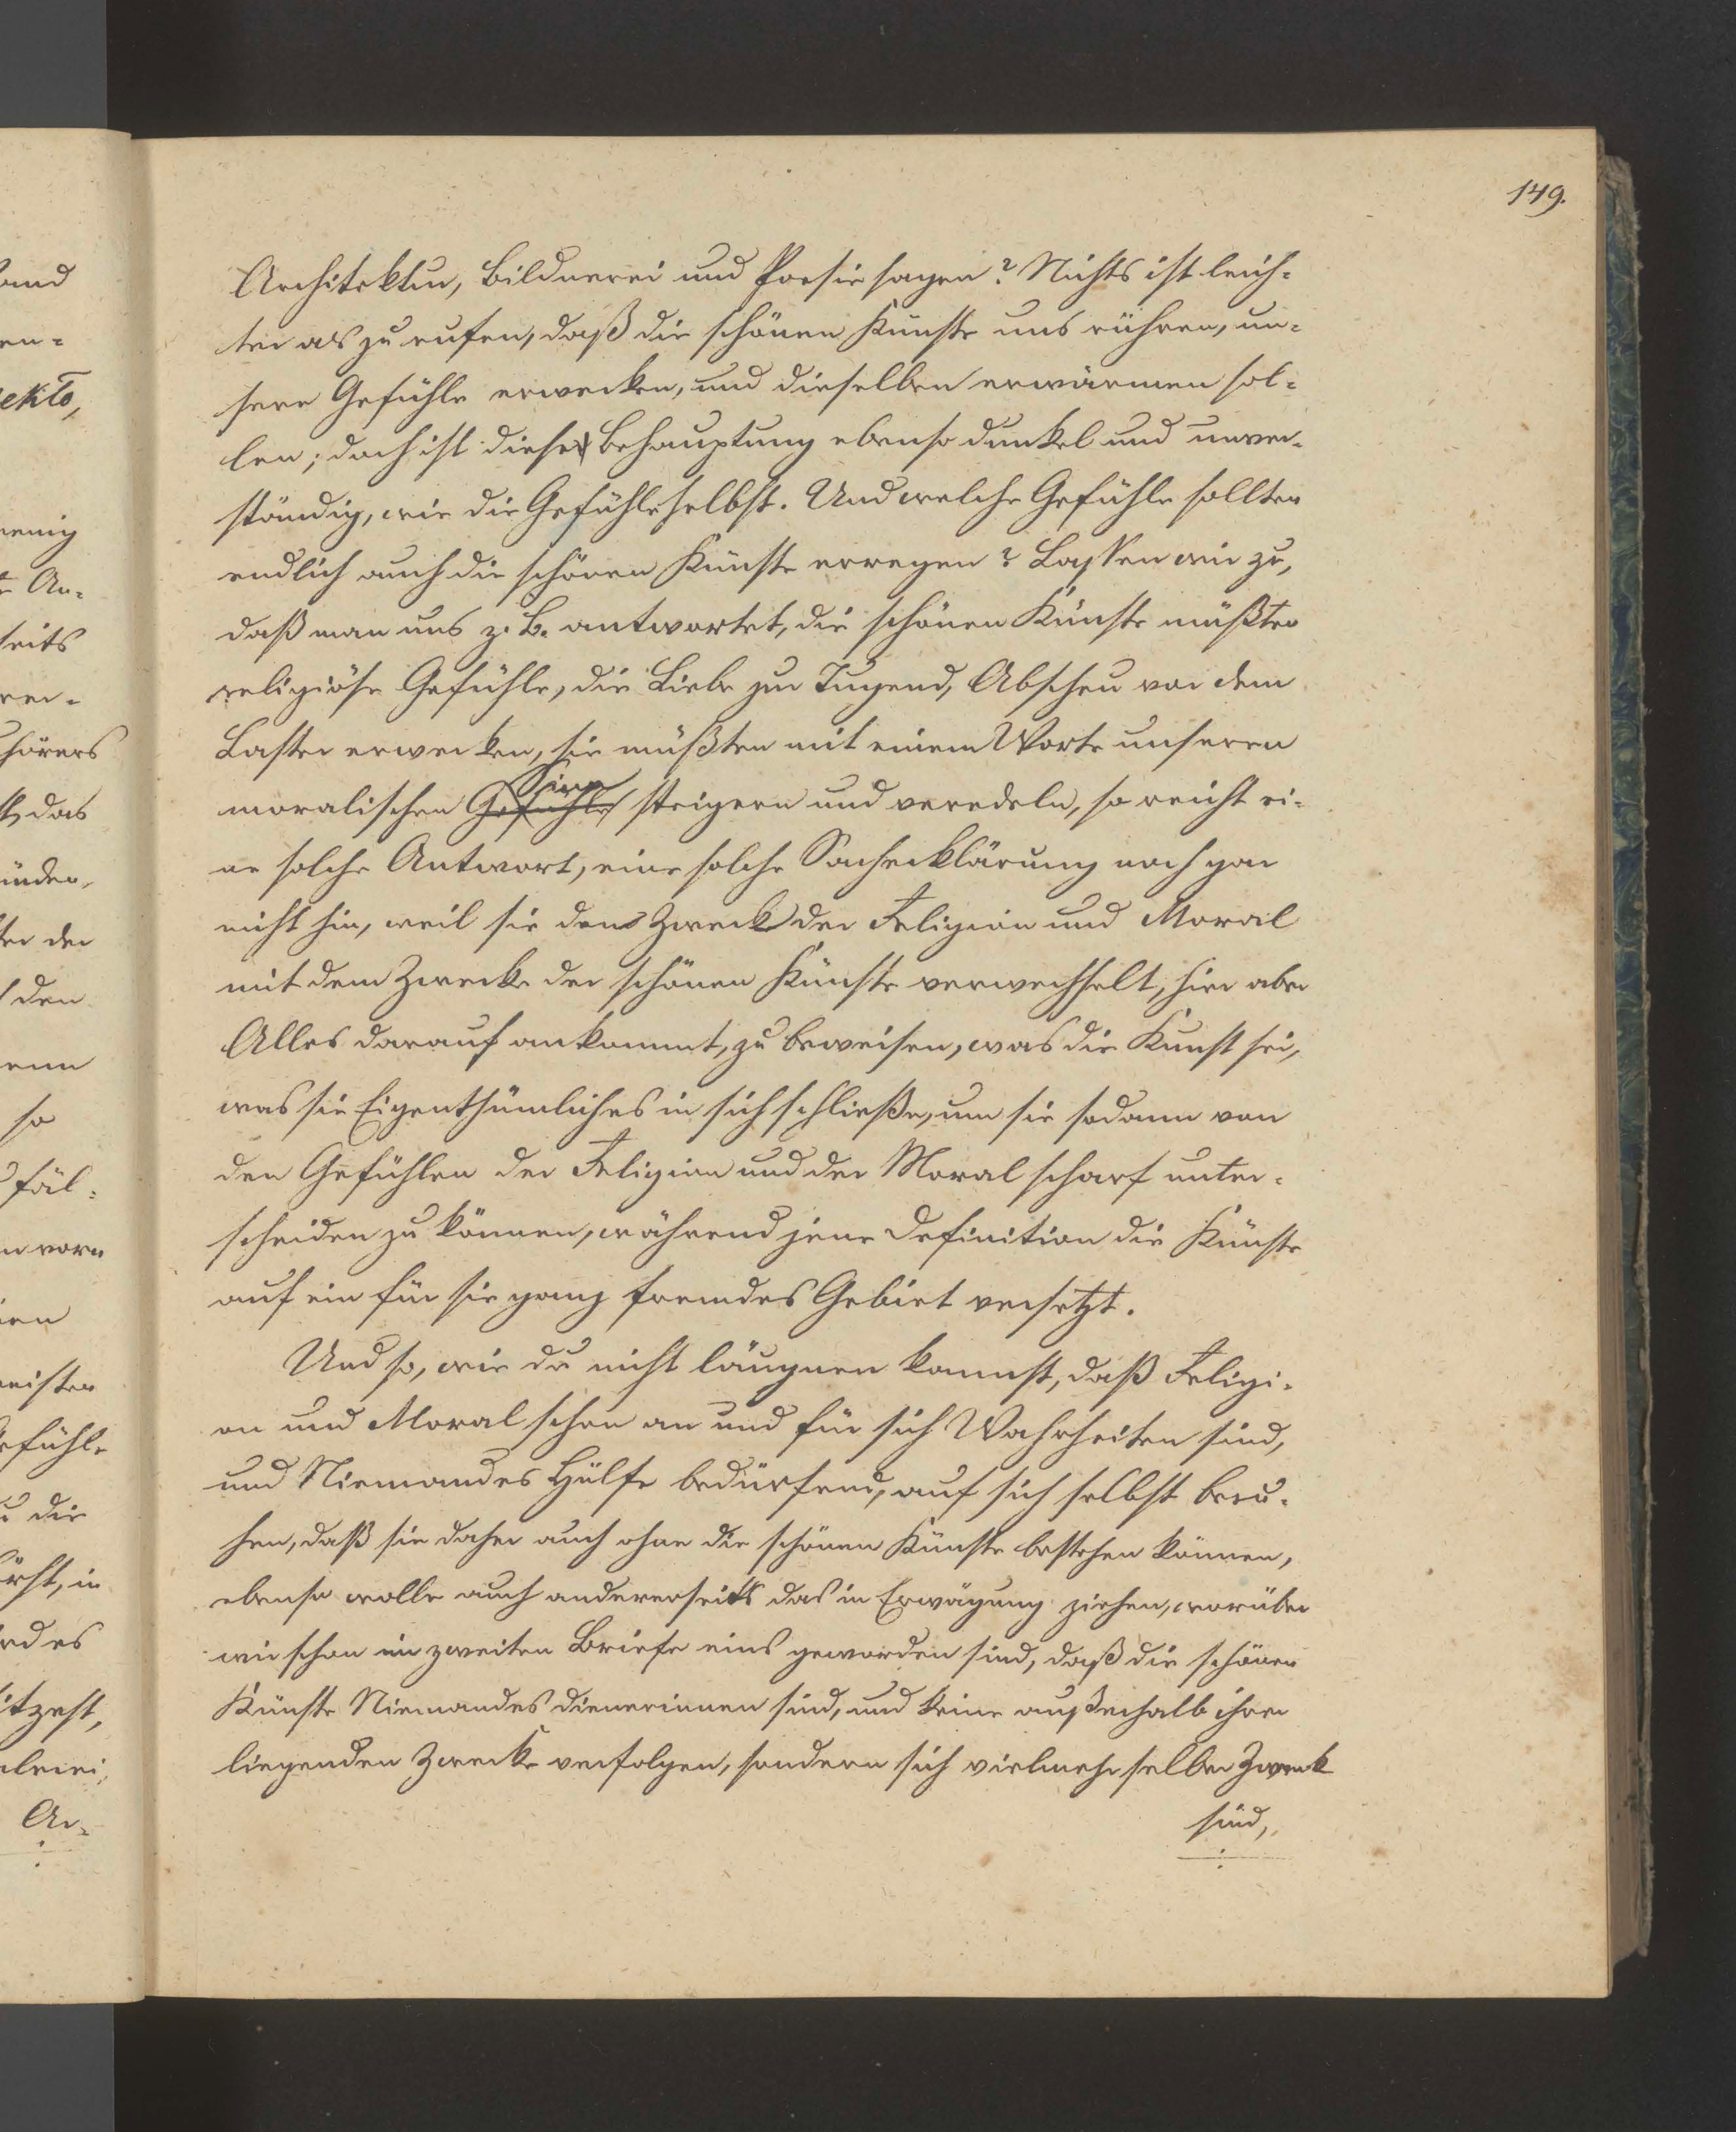 149.
Architektur, Bildnerei und Poesie sagen? Nichts ist leich-
ter als zu rufen, daß die schönen Künste uns rühren, un-
sere Gefühle erwecken, und dieselben erwärmen sol-
len; doch ist diese Behauptung ebenso dunkel und unver-
ständig, wie die Gefühle selbst. Und welche Gefühle sollten
endlich auch die schönen Künste erregen? Lassen wir zu,
daß man uns z. B. antwortet, die schönen Künste müßten
religiöse Gefühle, die Liebe zur Tugend, Abscheu vor dem
Laster erwecken, sie müßten mit einem Worte unseren
moralischen Gefühle Sinn steigern und veredeln, so reicht ei-
ne solche Antwort, eine solche Sacherklärung noch gar
nicht hin, weil sie den Zweck der Religion und Moral
mit dem Zwecke der schönen Künste verwechselt, hier aber
Alles darauf ankommt, zu beweisen, was die Kunst sei,
was sie Eigenthümliches in sich schließe, um sie sodann von
den Gefühlen der Religion und der Moral scharf unter-
scheiden zu können, während jene Definition die Künste
auf ein für sie ganz fremdes Gebiet versetzt.
Und so, wie du nicht läugnen kannst, daß Religi-
on und Moral schon an und für sich Wahrheiten sind,
und Niemandes Hülfe bedürfend, auf sich selbst beru-
hen, daß sie daher auch ohne die schönen Künste bestehen können,
ebenso wolle auch andererseits das in Erwägung ziehen, worüber
wir schon im zweiten Briefe eins geworden sind, daß die schönen
Künste Niemandes Dienerinnen sind, und keine außerhalb ihrer
liegenden Zwecke verfolgen, sondern sich vielmehr selber Zweck
sind,